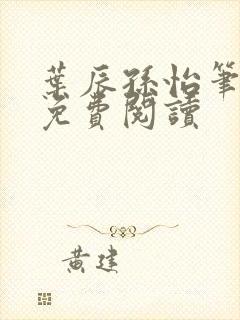 葉辰孫怡筆
免費閱讀
黃建